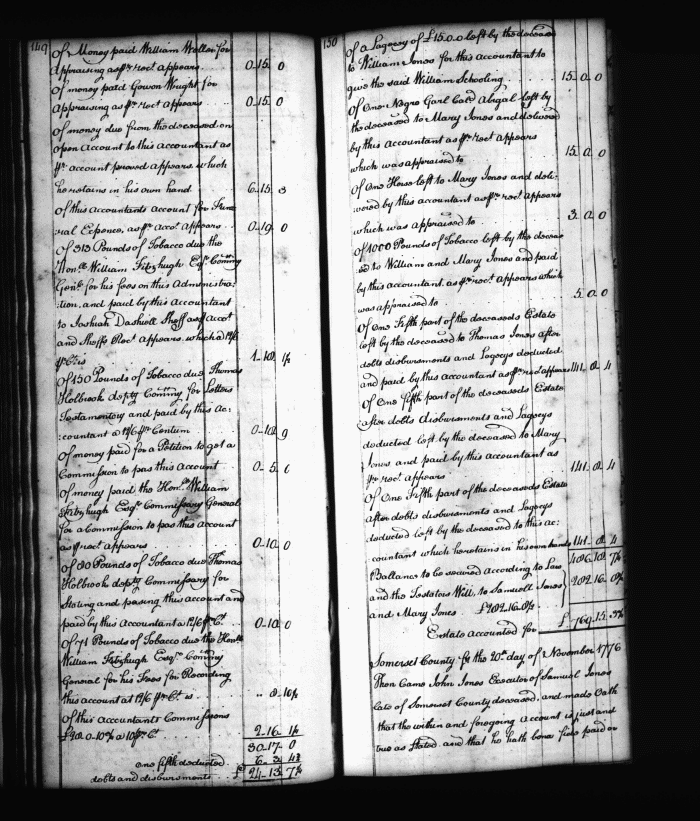 149
of Money paid William Waller for
Appraising as pr. rect. appears 0-15. 0
of money paid Gowon Wright for
Appraising as pr. rect. appears 0-15. 0
of money due from the deceased on
open Account to this Accountant as
pr. account proved appears, which
he retains in his own hand 6-15. 3
of this Accountants Account for Fune
ral Expence, as pr. Acct. appears 0-19. 0
of 313 Pounds of Tobacco due the
Honble. William Fitzhugh Esqr. Commy
Genl. for his fees on this Administra:
:tion, and paid by this Accountant
to Joshiah Dashiell Sheff as pr Acct
and Sheffs Rect. Appears, which a 12/6
pr. Ct. is 1-19. 1½
of 150 Pounds of Tobacco due Thomas
Holbrook depty Commy. for Letters
Testamentory and paid by this Ac:
:countant a 12/6 pr. Centum 0-18. 9
of money paid for a Petition to get a
Commission to pas this Account 0-5. 6
of money paid the Honl. William
Fitzhugh Esqr. Commissary General
for a Commission to pas this Account
as pr rect. appears 0-10. 0
of 80 Pounds of Tobacco due Thomas
Holbrook depty Commissary for
Stating and passing this account and
paid by this Accountant a 12/6 pr. Ct. 0-10. 0
of 71 Pounds of Tobacco due the Honle.
William Fitzhugh Esqr. Commy
General for his Fees for Recording
this account at 12/6 pr. Ct. is " 8. 10½
of this Accountants Commissions
a 10 pr. Ct. 2-16. 1½
30-17. 0
one fifth deducted 6-3. 4¾
debts and disbursments £ 24-13. 7½
150
of a Lagecy of £15.0.0 left by the deceased
to William Jones for this Accountant to
give the said William Schooling 15. 0. 0
of One Negro Garl Cald Abigal left by
the deceased to Mary Jones and deliverd
by this Accountant as pr rect. appears
which was appraised to 15. 0. 0
of One Horse left to Mary Jones and deli:
vered by this accountant as pr. rect. appears
which was appraised to 3. 0. 0
of 1000 Pounds of Tobacco left by the deceas
ed to William and Mary Jones and paid
by this accountant, as pr. rect. Appears which
was appraised to 5. 0. 0
of One Fifth part of the deceaseds Estate
left by the deceased to Thomas Jones after
debts disbursments and Lagecys deducted
and paid by this Accountant as pr. rect. appears 141. 8. 4
of One fifth part of the deceaseds Estate
after debts disbursments and Lagecys
deducted left by the deceased to Mary
Jones and paid by this accountant as
pr. rect. appears 141. 8. 4
of One Fifth part of the deceaseds Estate
after debts disbursments and Lagecys
deducted left by the deceased to this Ac:
countant which he retains in his own hands 141. 8. 4
Ballance to be secured According to Law 486. 18. 7½
and the Testators Will, to Samuell Jones 282. 16. 8¼
and Mary Jones £282.16.8¼
Estate accounted for £ 769. 15. 3¾
Somerset County ss the 20th. day of November 1776
Then Came John Jones Executor of Samuel Jones
late of Somerset County deceased, and made Oath
that the within and foregoing Account is just and
true as Stated, and that he hath bona fide paid or